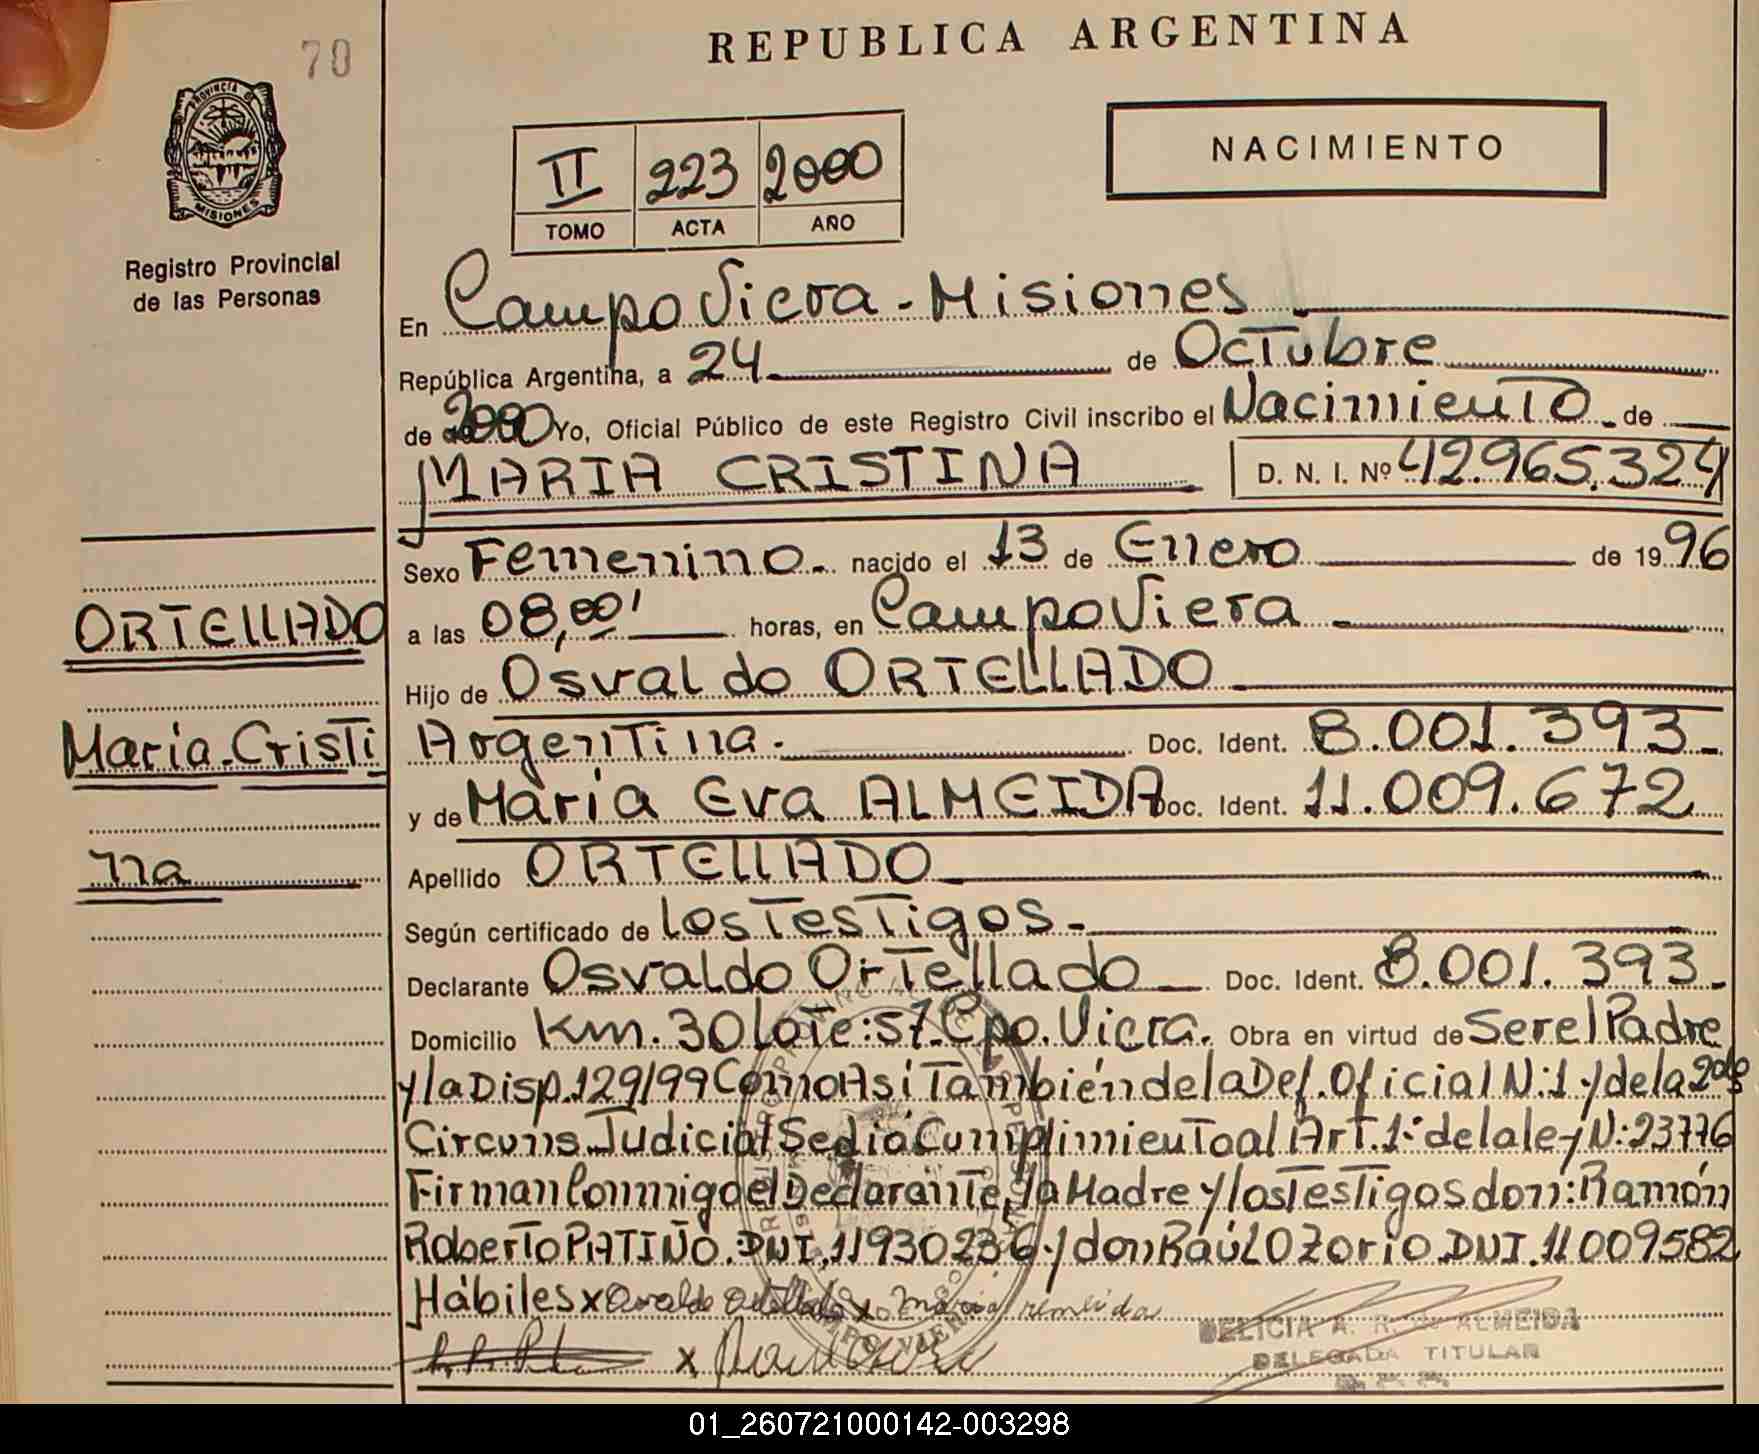 70
REPUBLICA ARGENTINA
PROVINCIA DE
MISIONES
Registro Provincial
de las Personas
II 223 2000
TOMO ACTA AÑO
NACIMIENTO
En Campo Viera - Misiones
República Argentina, a 24 de Octubre
de 2000 Yo, Oficial Público de este Registro Civil inscribo el Nacimiento de
MARIA CRISTINA D. N. I. Nº 42.965.324
Sexo Femenino. nacido el 13 de Enero de 1996
a las 08,00' horas, en Campo Viera
Hijo de Osvaldo ORTELLADO
Argentina. Doc. Ident. 8.001.393
y de Maria Eva ALMEIDA Doc. Ident. 11.009.672
Apellido ORTELLADO
Según certificado de los Testigos
Declarante Osvaldo Ortellado Doc. Ident. 8.001.393
Domicilio Km. 30 Lote: 57. Cpo. Viera. Obra en virtud de Ser el Padre
y la Disp. 129/99 Como Así También de la Def. Oficial N:1 y de la 2da
Circuns. Judicial Se dio Cumplimiento al Art. 1: de la ley N: 23776
Firman Conmigo el Declarante, la Madre y los Testigos don: Ramón
Roberto PATIÑO. DNI. 11930236 y don Raúl OZorio. DNI. 11009582
Hábiles x Osvaldo Ortellado x
x
DELICIA A. R. de ALMEIDA
DELEGADA TITULAR
ORTELLADO
Maria Cristi
na
01_260721000142-003298